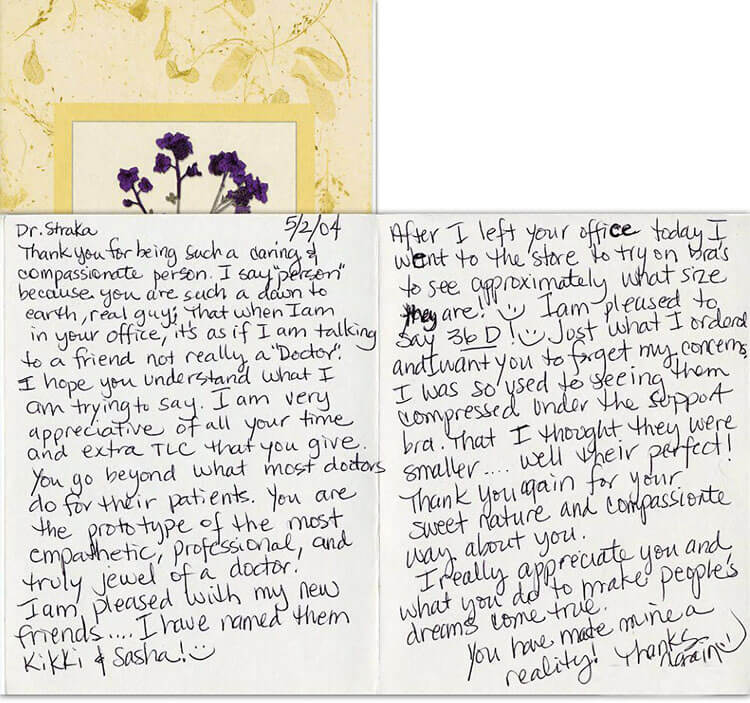 Dr. Straka 5/2/04
Thank you for being such a caring &
compassionate person. I say "person"
because you are such a down to
earth, real guy; That when I am
in your office, it's as if I am talking
to a friend not really a "Doctor".
I hope you understand what I
am trying to say. I am very
appreciative of all your time
and extra TLC that you give.
You go beyond what most doctors
do for their patients. You are
the prototype of the most
empathetic, professional, and
truly jewel of a doctor.
I am pleased with my new
friends.... I have named them
Kikki & Sasha!
After I left your office today I
went to the store to try on bra's
to see approximately what size
they are! I am pleased to
say 36 D! Just what I ordered
and I want you to forget my concerns,
I was so used to seeing them
compressed under the support
bra. That I thought they were
smaller.... well their perfect!
Thank you again for your
sweet nature and compassionte
way about you.
I really appreciate you and
what you do to make people's
dreams come true.
You have made mine a
reality! Thanks